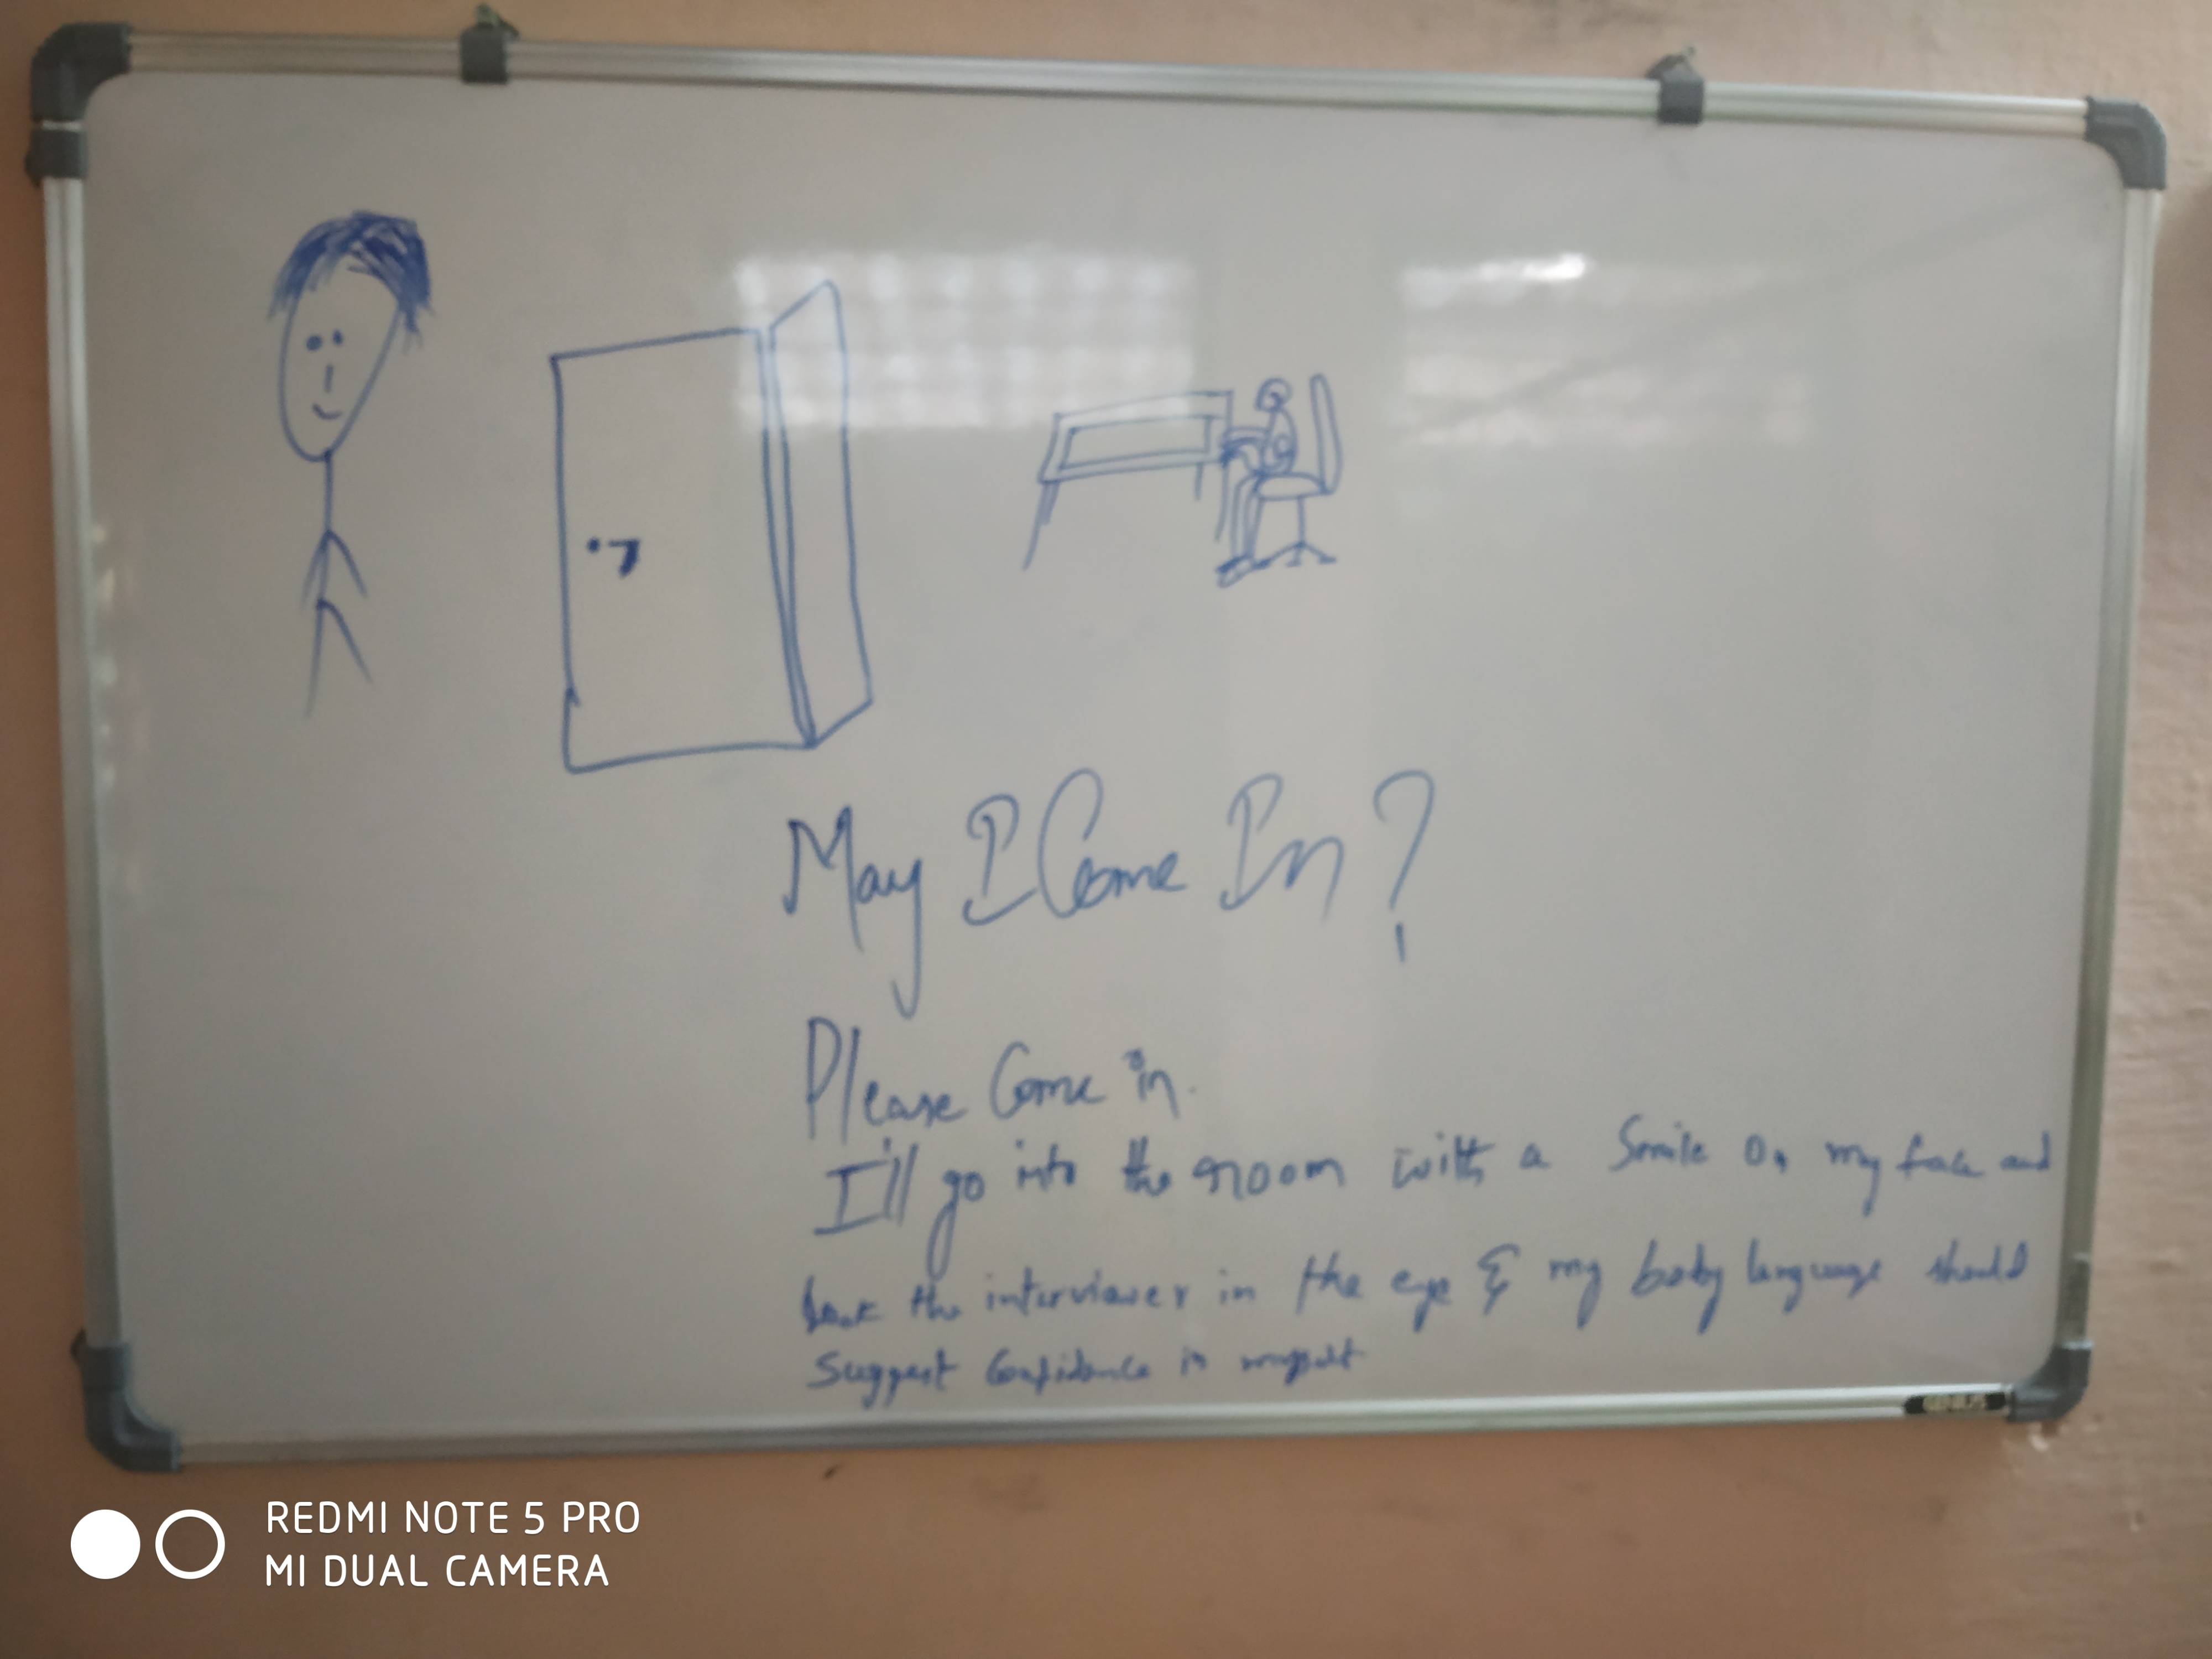 May I Come In?
Please Come in.
I'll go into the room with a Smile On my face and
look the interviewer in the eye & my body language should
Suggest Confidence in
GENIUS
REDMI NOTE 5 PRO
MI DUAL CAMERA